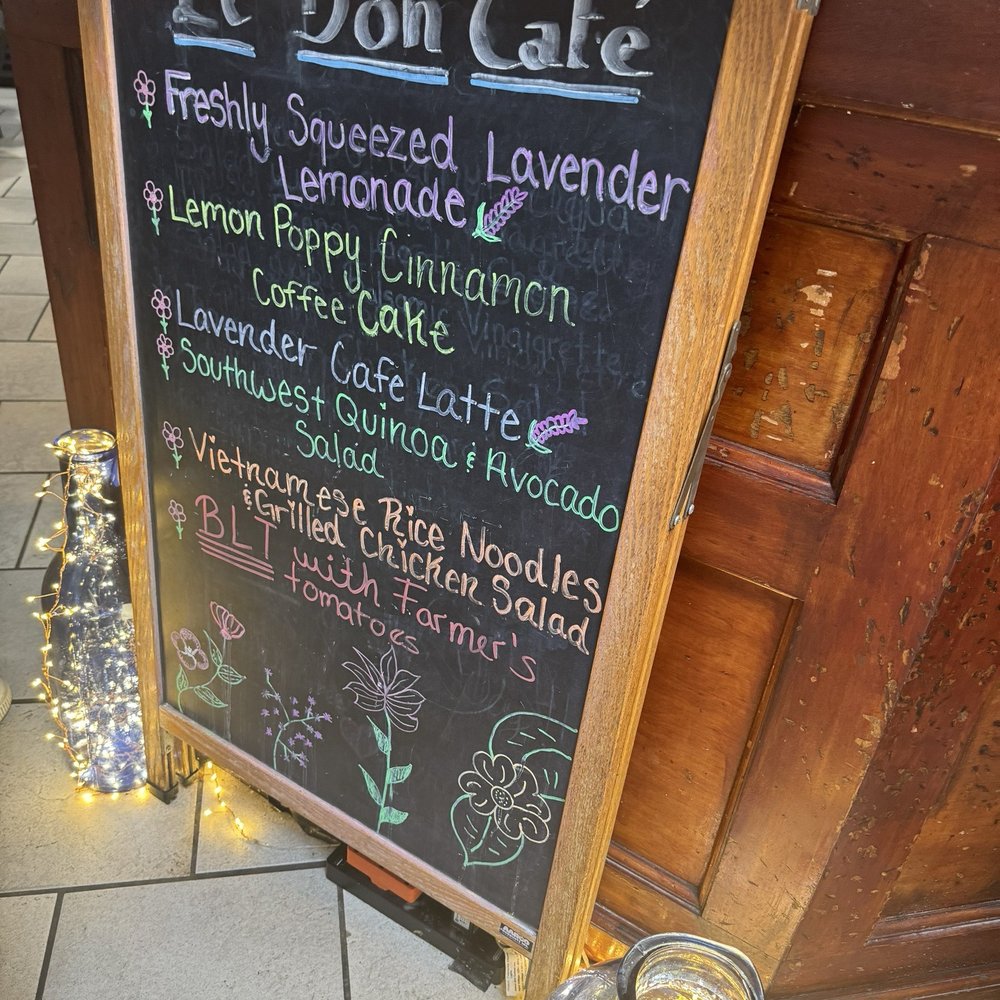 Le Don Café
Freshly Squeezed Lavender
Lemonade
Lemon Poppy Cinnamon
Coffee Cake
Lavender Café Latte
Southwest Quinoa & Avocado
Salad
Vietnamese Rice Noodles
& Grilled Chicken Salad
BLT with Farmer's
tomatoes